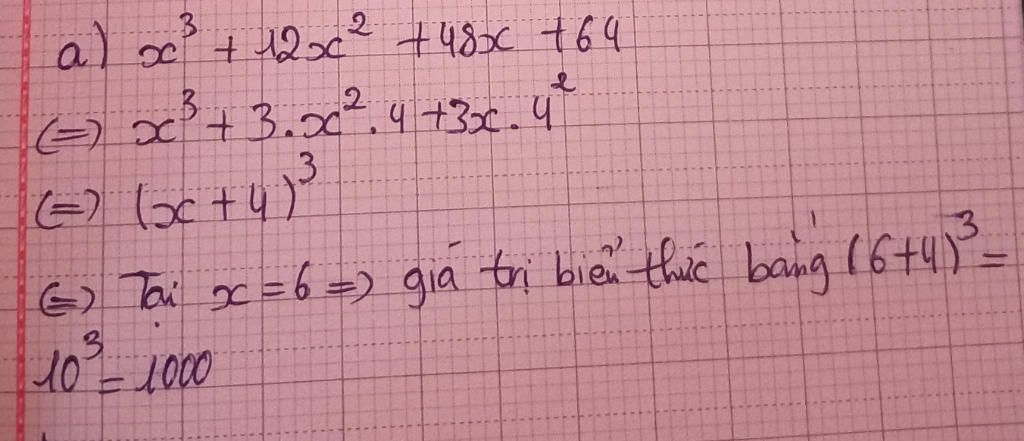 a) x³ + 12x² + 48x + 64
(=) x³ + 3.x².4 + 3x.4²
(=) (x + 4)³
(=) Tại x = 6 => giá trị biểu thức bằng (6+4)³ =
10³ = 1000